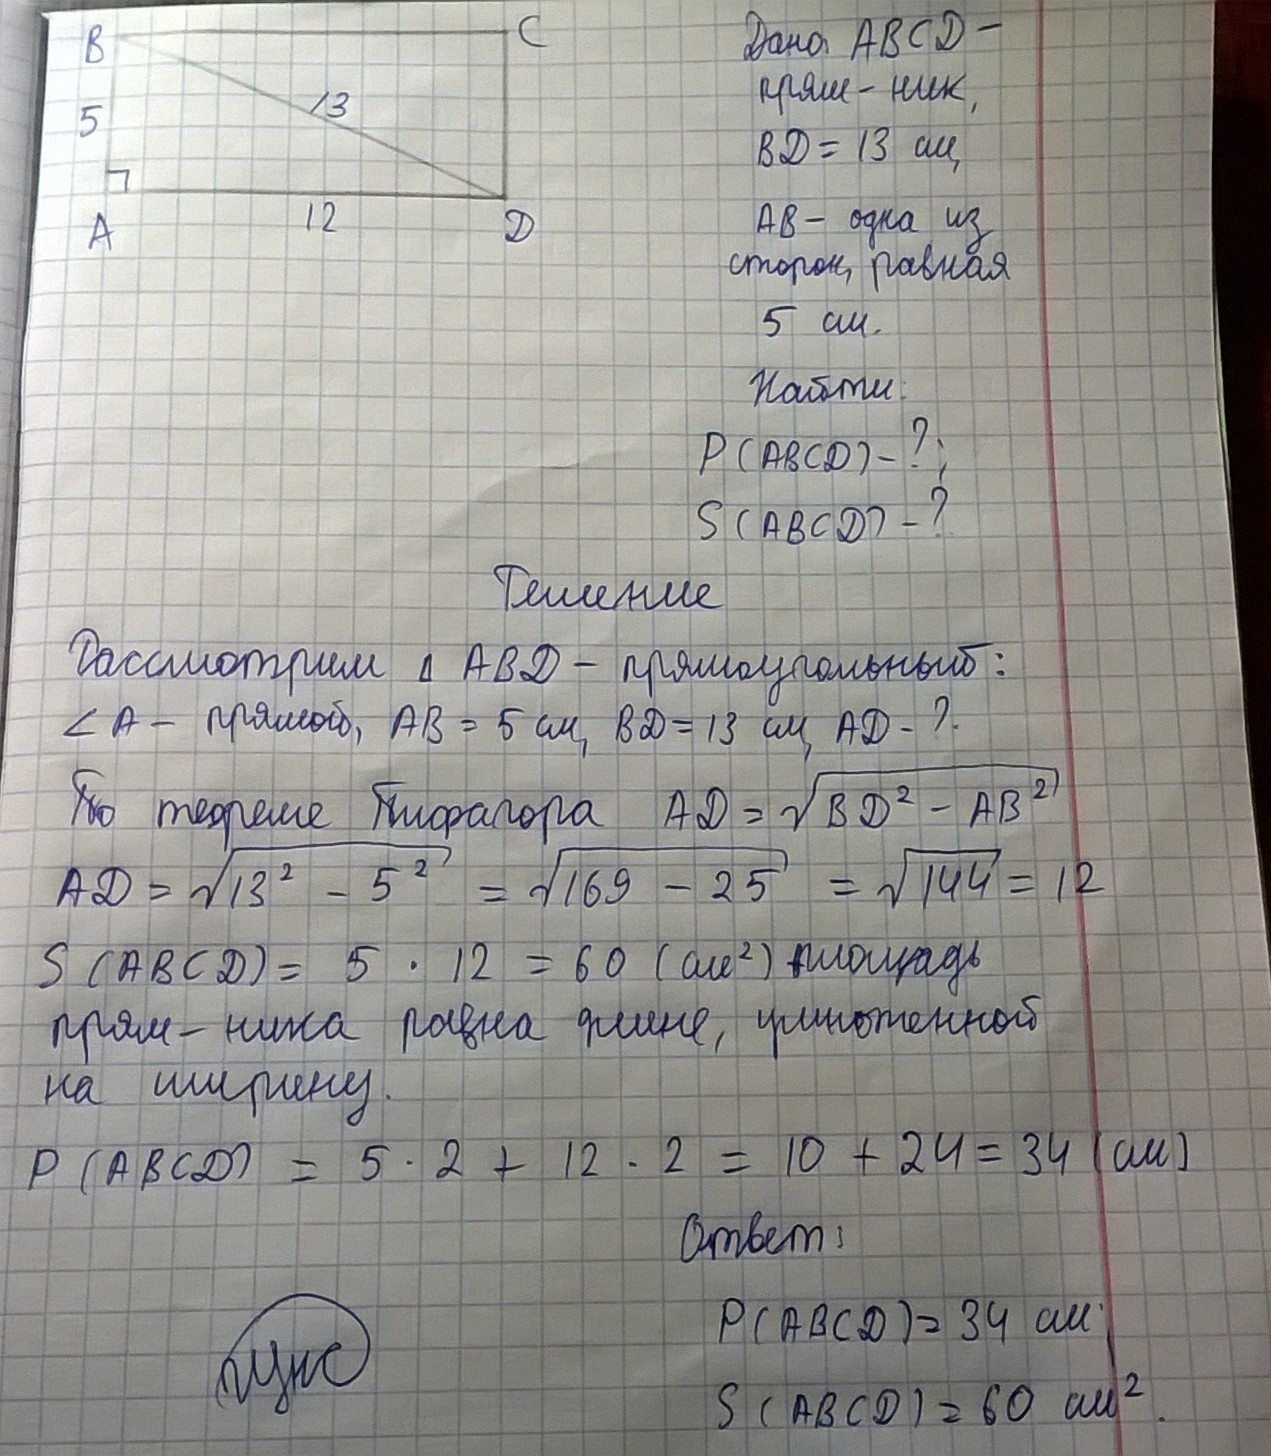 B
C
5
13
A
12
D
Дано: ABCD -
прям-ник,
BD = 13 см,
AB - одна из
сторон, равная
5 см.
Найти:
P (ABCD) - ?;
S (ABCD) - ?
Решение
Рассмотрим Δ ABD - прямоугольный:
∠A - прямой, AB = 5 см, BD = 13 см, AD - ?.
По теореме Пифагора AD = √(BD² - AB²)
AD = √(13² - 5²) = √(169 - 25) = √144 = 12
S (ABCD) = 5 · 12 = 60 (см²) площадь
прям-ника равна длине, умноженной
на ширину.
P (ABCD) = 5 · 2 + 12 · 2 = 10 + 24 = 34 (см)
Ответ:
P(ABCD) = 34 см;
S (ABCD) = 60 см².